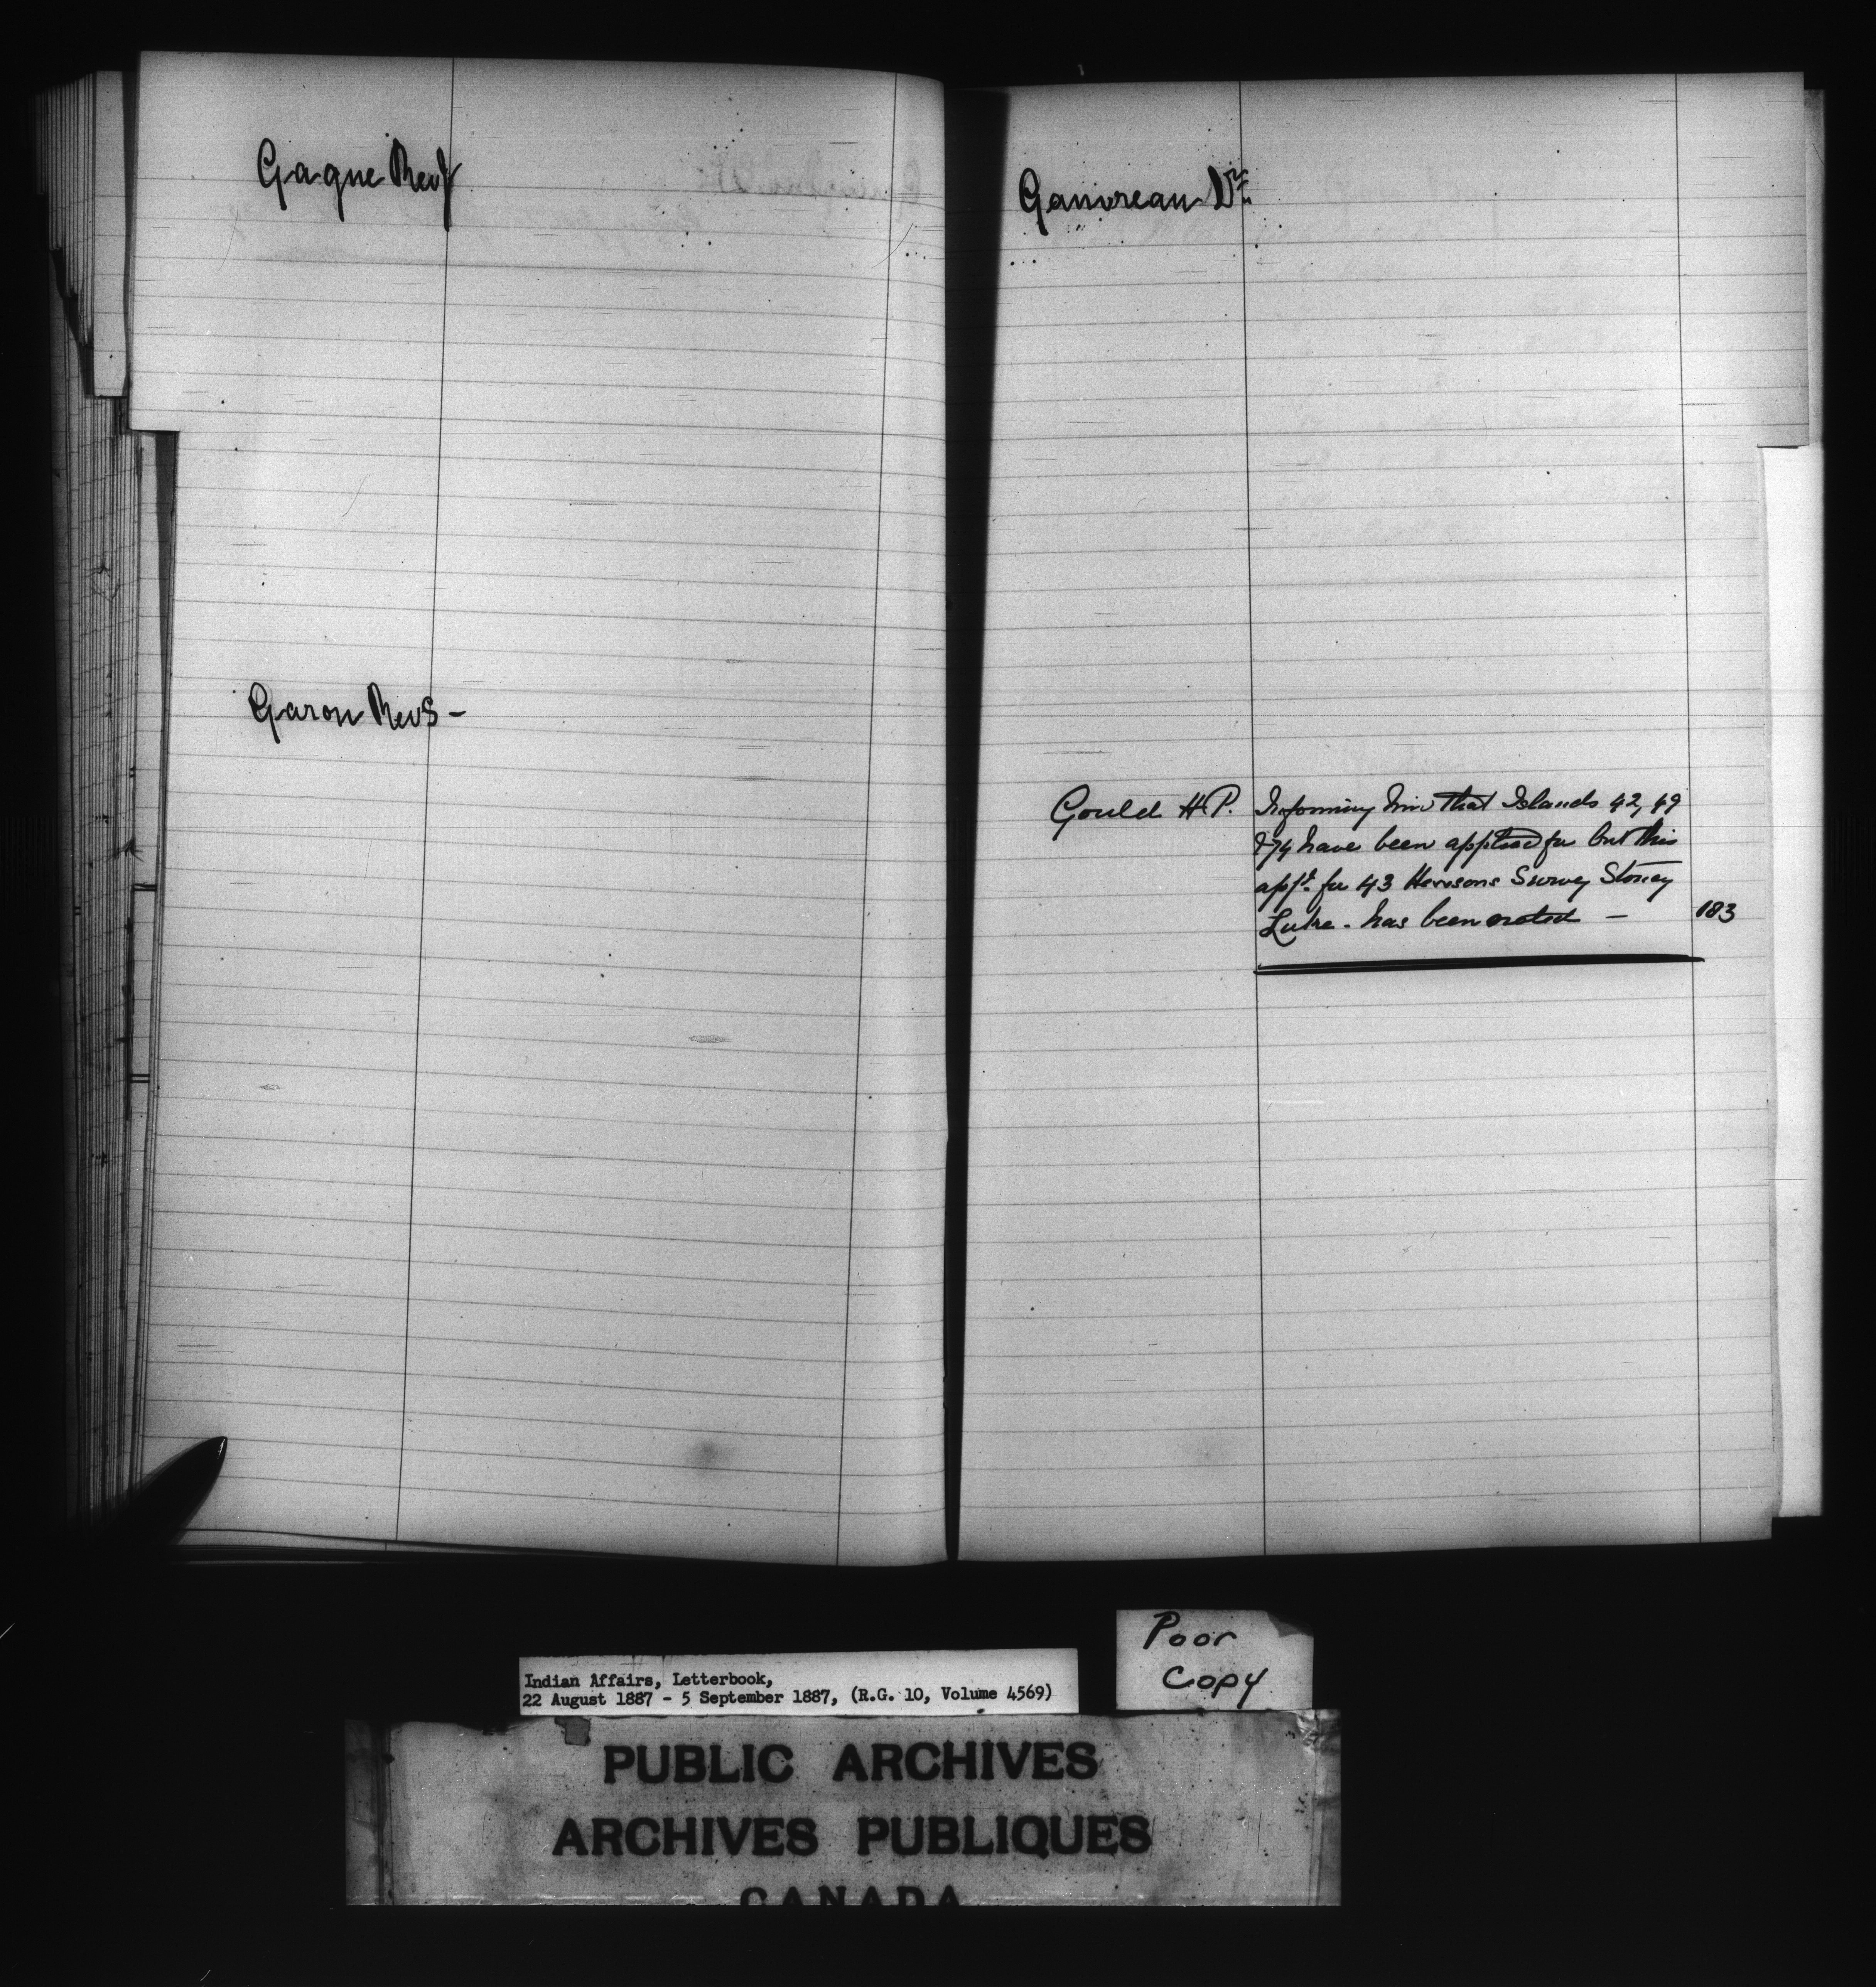 Gagne Rev J
Garon Rev S -
Ganvreau Dr.
Gould H P. Informing him that Islands 42, 49
& 74 have been applied for but his
appn. for 43 Stoney
Lake - has been noted - 183
Poor
Copy
Indian Affairs, Letterbook,
22 August 1887 - 5 September 1887, (R.G. 10, Volume 4569)
PUBLIC ARCHIVES
ARCHIVES PUBLIQUES
CANADA